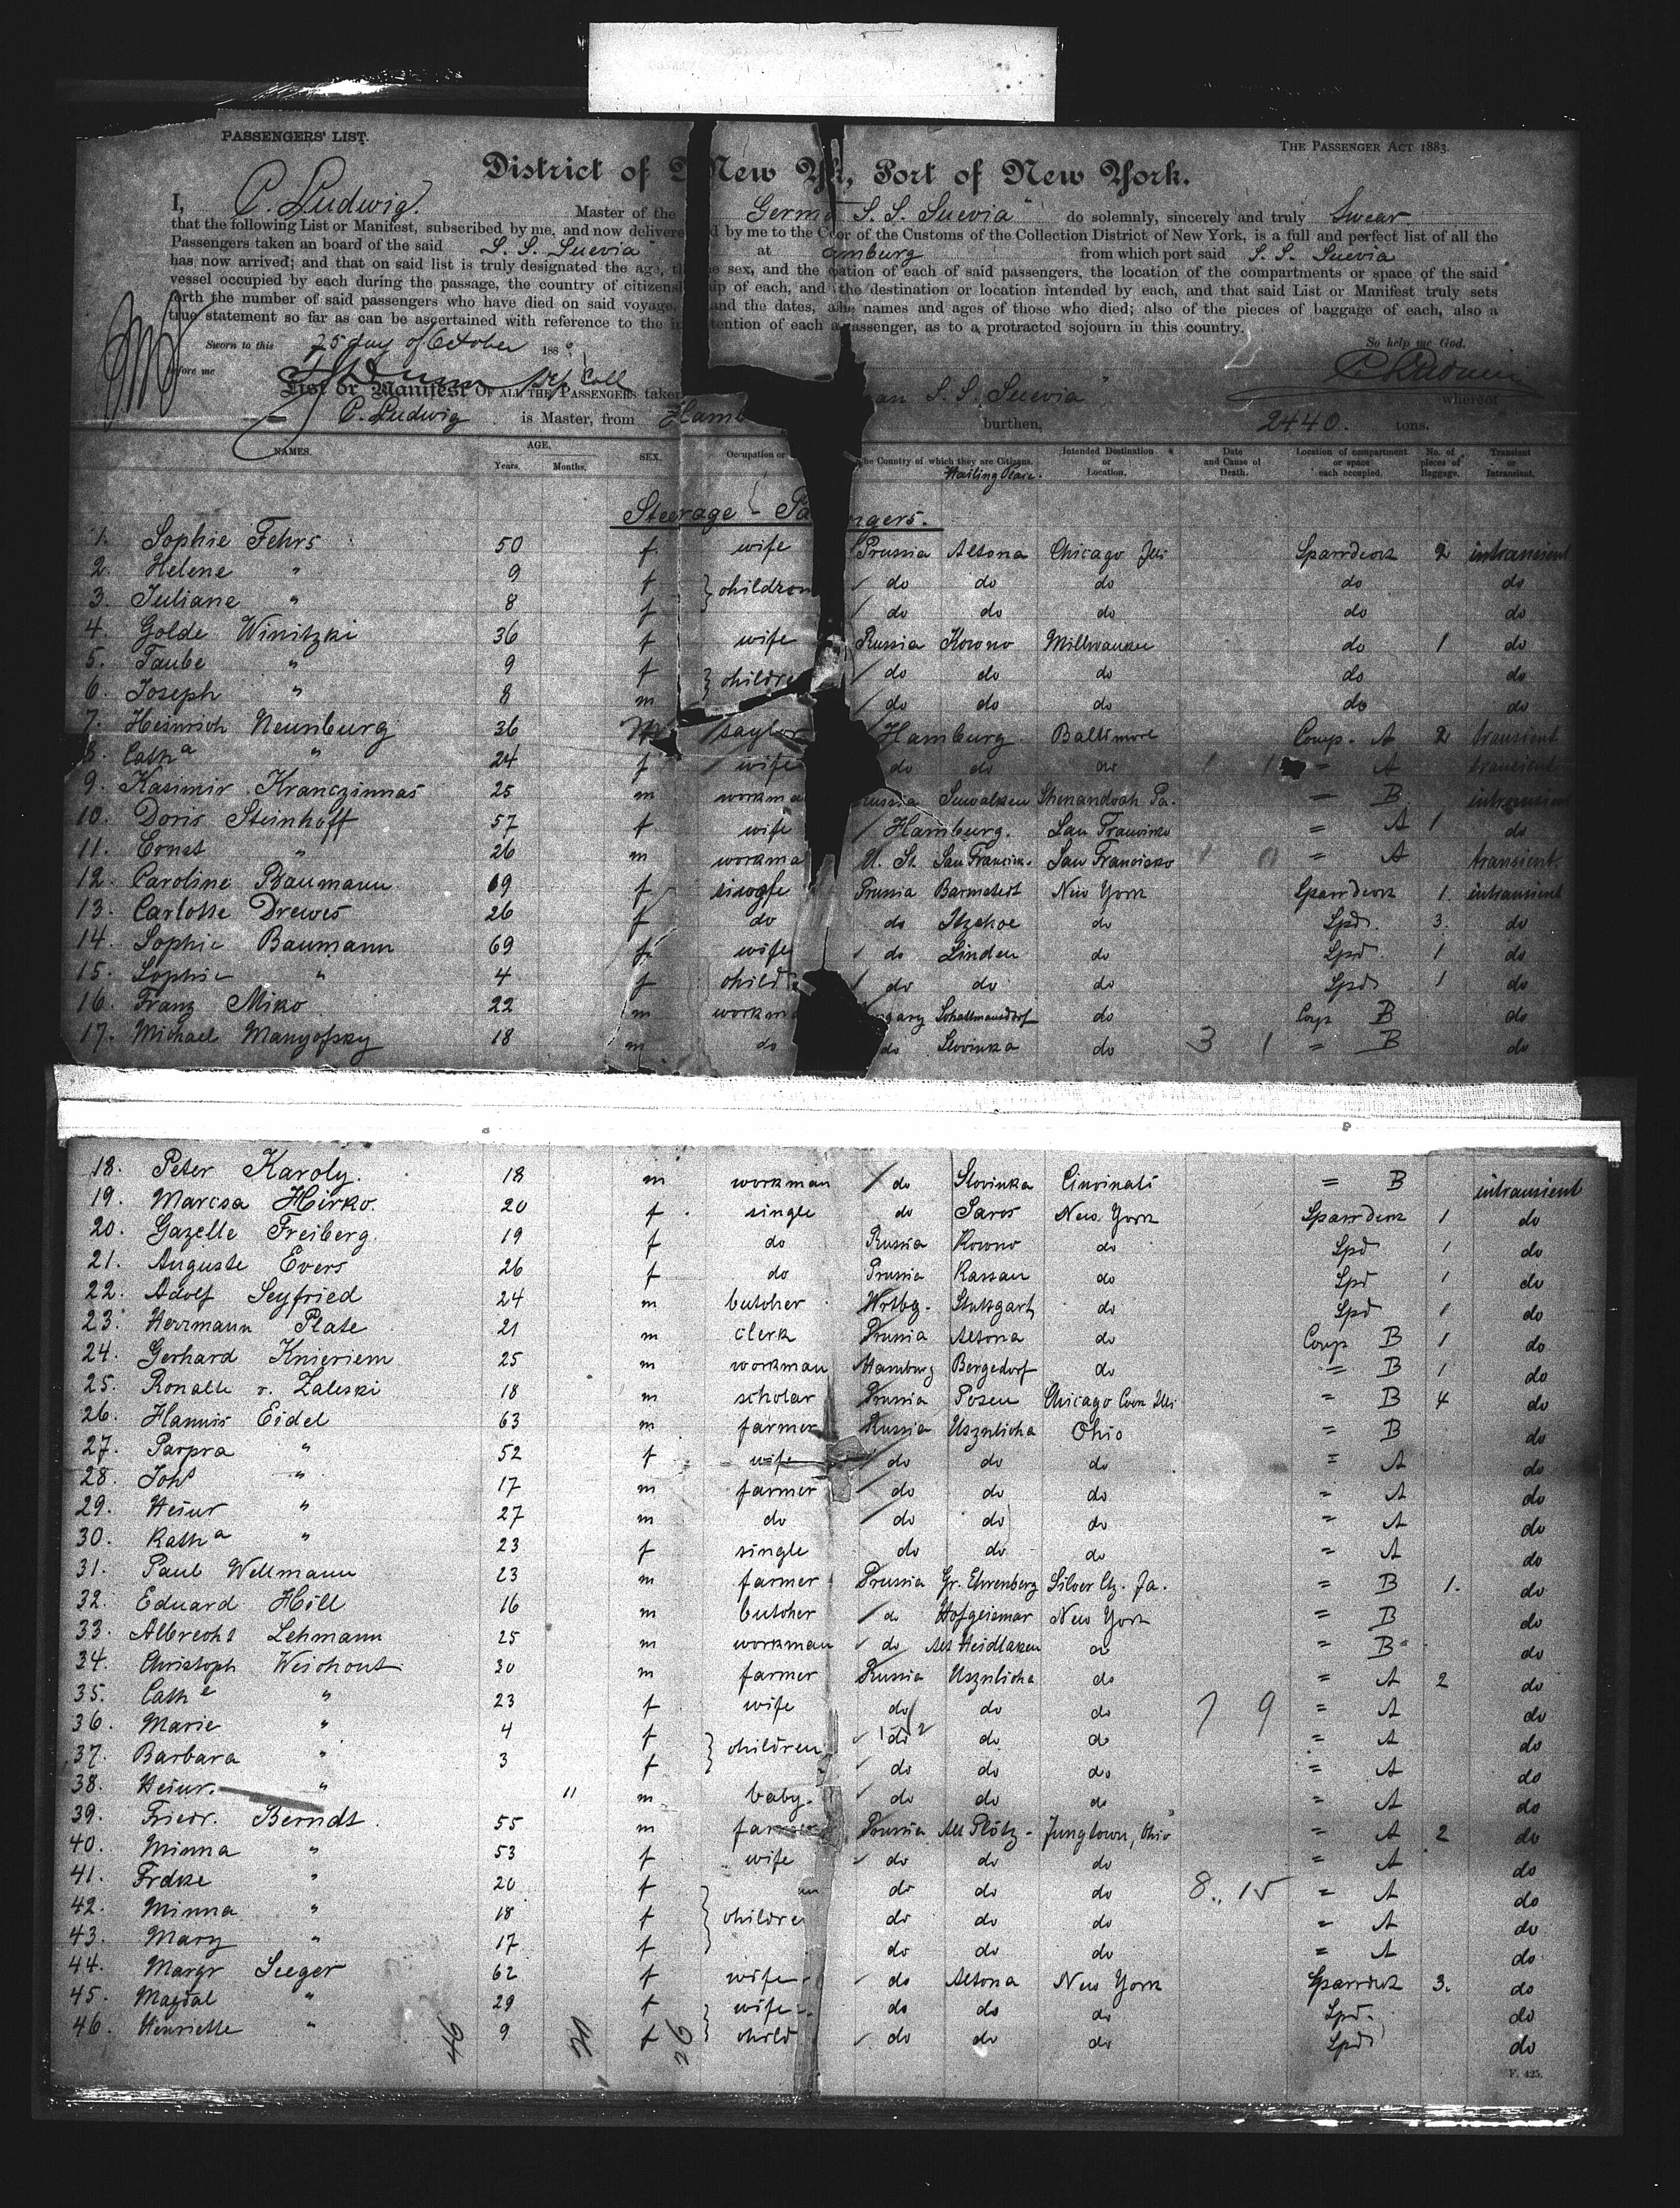 PASSENGERS' LIST.
THE PASSENGER ACT 1883.
District of New Yk, Port of New York.
I, C. Ludwig. Master of the Germa S. S. Suevia" do solemnly, sincerely and truly Swear
that the following List or Manifest, subscribed by me, and now delivered by me to the Cor of the Customs of the Collection District of New York, is a full and perfect list of all the
Passengers taken an board of the said S. S. Suevia at amburg from which port said S. S. Suevia
has now arrived; and that on said list is truly designated the age, the sex, and the pation of each of said passengers, the location of the compartments or space of the said
vessel occupied by each during the passage, the country of citizenship of each, and the destination or location intended by each, and that said List or Manifest truly sets
forth the number of said passengers who have died on said voyage, and the dates, and names and ages of those who died; also of the pieces of baggage of each, also a
true statement so far as can be ascertained with reference to the intention of each passenger, as to a protracted sojourn in this country.
Sworn to this 25 day of October 188
So help me God.
before me
List or Manifest OF ALL THE PASSENGERS taken an S. S. Suevia" whereof
C. Ludwig is Master, from Hamb burthen, 2440. tons.
NAMES. AGE. Years. Months. SEX. Occupation or The Country of which they are Citizens. Intended Destination or Location. Date and Cause of Death. Location of compartment or space each occupied. No. of pieces of Baggage. Transient or Intransient.
Steerage - Pa ngers.
1. Sophie Fehrs 50 f. wife Prussia Altona Chicago Ills Sparrdeck 2 intransient
2. Helene " 9 f } children do do do do do
3. Juliane " 8 f do do do do do
4. Golde Winitzki 36 f wife Russia Kowno Millwaukee do 1 do
5. Taube " 9 f } childre do do do do do
6. Joseph " 8 m do do do do do
7. Heinrich Neunburg 36 m taylor Hamburg Baltimore Comp. A 2 transient
8. Cath a " 24 f wife do do do = A transient
9. Kasimir Kranczinnas 25 m workma ussia Suwalken Shenandoah Pa. = B intransient
10. Doris Steinhoff 57 f wife Hamburg. San Francisko = A 1 do
11. Ernst " 26 m workma U. St. San Francisk. San Francisko = A transient.
12. Caroline Baumann 69 f single Prussia Barmstedt New York Sparrdeck 1. intransient
13. Carlotte Drewes 26 f do do Itzehoe do Spd. 3. do
14. Sophie Baumann 69 f. wife do Linden do Spd 1 do
15. Sophie " 4 f child do do do Spd 1 do
16. Franz Miko 22 m workma ngary Schallmansdorf do Comp B do
17. Michael Manyofsky 18 m do do Slovinka do 3 1 = B do
18. Peter Karoly. 18 m workman do Slovinka Cincinati = B intransient
19. Marcsa Hirko. 20 f. single do Saros New York Sparrdeck 1 do
20. Gazelle Freiberg. 19 f do Russia Kowno do Spd 1 do
21. Auguste Evers 26 f do Prussia Kassau do Spd 1 do
22. Adolf Seyfried 24 m butcher Wrtbg. Stuttgart do Spd 1 do
23. Herrmann Plate 21 m clerk Prussia Altona do Comp B 1 do
24. Gerhard Knieriem 25 m workman Hamburg Bergedorf do = B 1 do
25. v. Zaleski 18 m scholar Prussia Posen Chicago Ills = B 4 do
26. Hannis Eidel 63 m farmer Russia Usznlicha Ohio = B do
27. Parpra " 52 f wife do do do = A do
28. Johs " 17 m farmer do do do = A do
29. Heinr " 27 m do do do do = A do
30. Kath a " 23 f single do do do = A do
31. Paul Wellmann 23 m farmer Prussia Gr. Ehrenberg Silver Ja. = B 1. do
32. Eduard Hill 16 m butcher do Hofgeismar New York = B do
33. Albrecht Lehmann 25 m workman do Alt Heidlaken do = B do
34. Christoph Weichout 30 m farmer Russia Usznlicha do = A 2 do
35. Cath e " 23 f wife do do do 7 9 = A do
36. Marie " 4 f } children do do do = A do
37. Barbara " 3 f do do do = A do
38. Heinr. " 11 m baby. do do do = A do
39. Friedr. Berndt 55 m farmer Prussia Alt Plötz Jungtown, Ohio = A 2 do
40. Minna " 53 f wife do do do = A do
41. Frdke " 20 f do do do 8. 15 = A do
42. Minna " 18 f } childre do do do = A do
43. Mary " 17 f do do do = A do
44. Margr Seeger 62 f wife do Altona New York Sparrdeck 3. do
45. Magdal " 29 f } wife do do do Spd. do
46. Henriette " 9 f child do do do Spd do
46 26
F. 425.